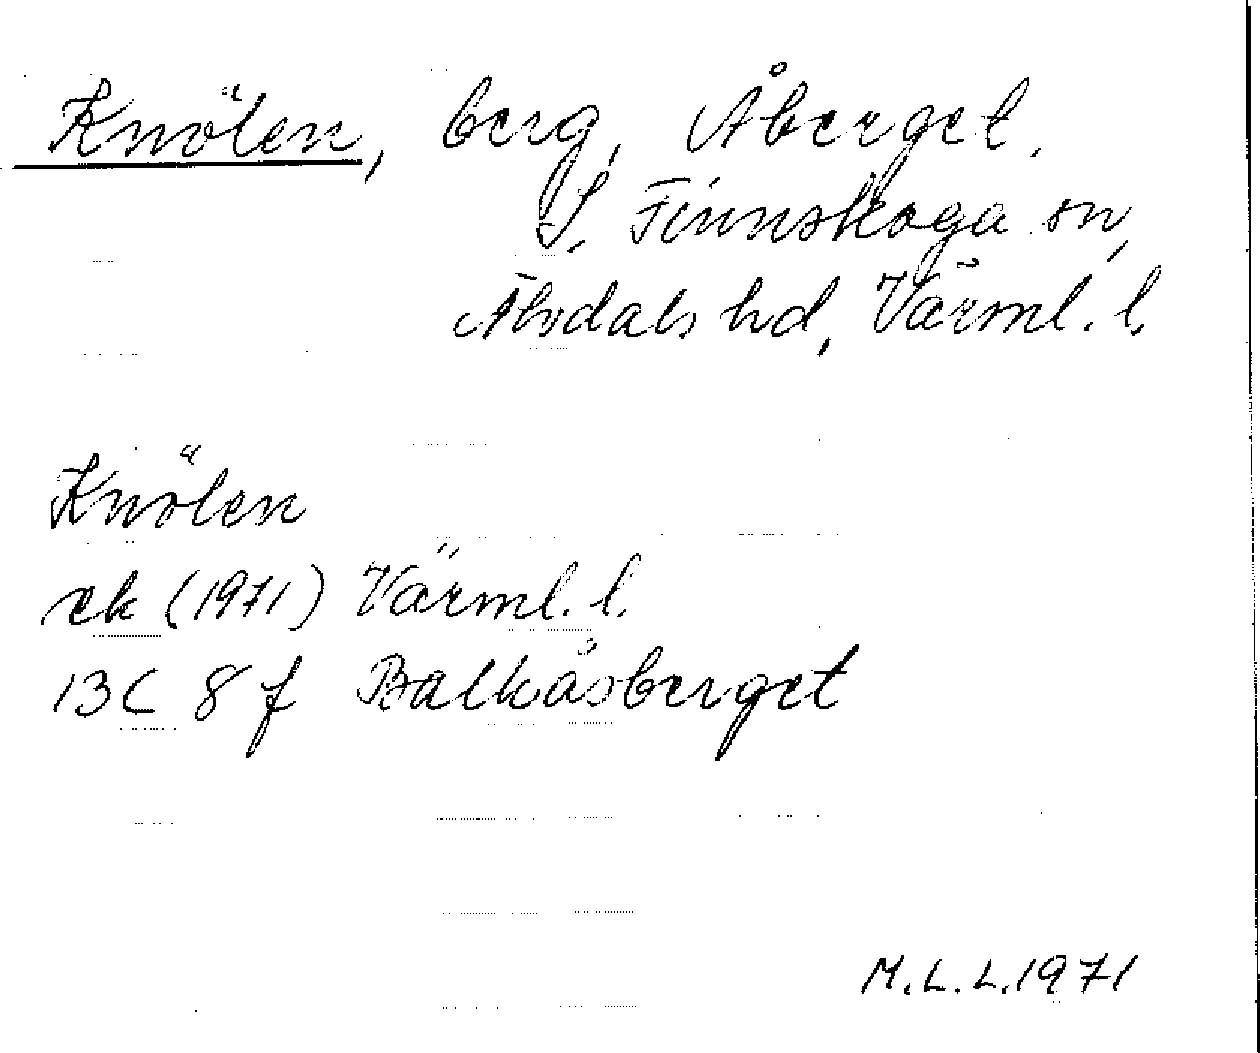 Knölen, berg, Åberget.
S. Finnskoga sn,
Älvdals hd, Värml. l.
Knölen
ek (1971) Värml. l.
13C 8f Balkåsberget
M.L.L. 1971